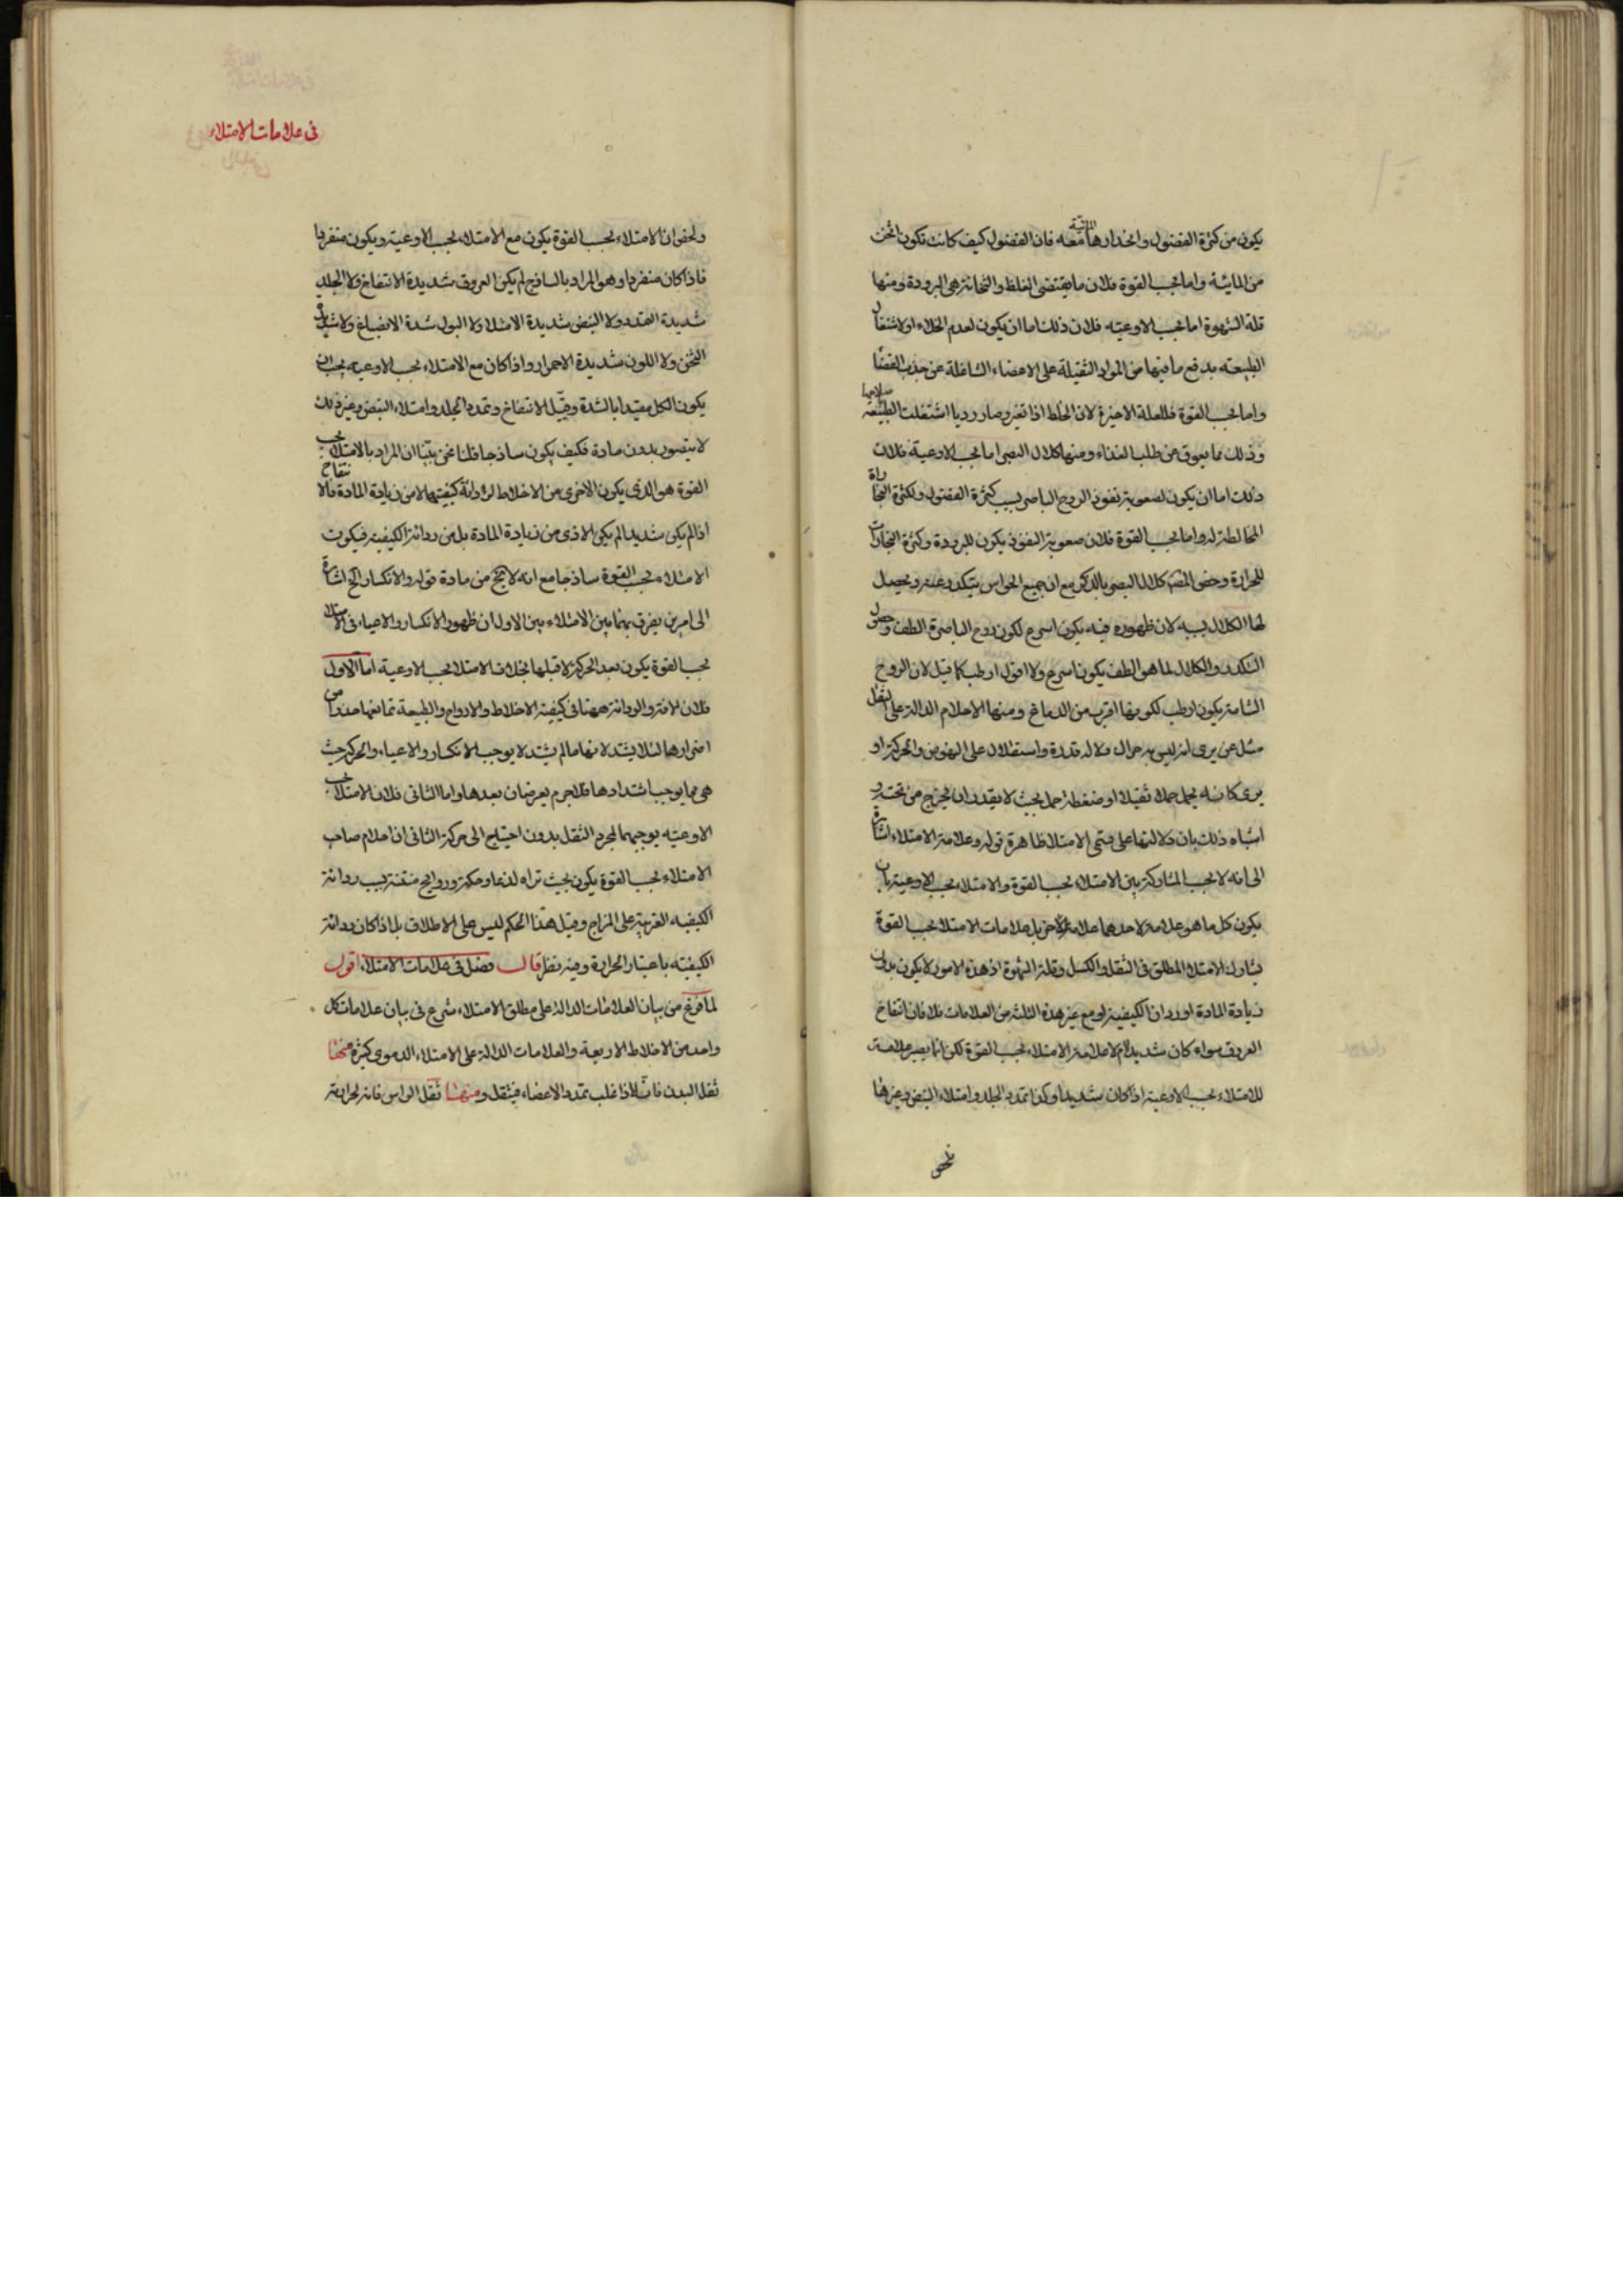 يكون من كثرة الفضول وانحدارها المائية معه فان الفضول كيف كانت تكون اثخن
من المائية واما بحسب القوة فلان ما يقتضى الغلظ والثخانة هى البرودة ومنها
قلة الشهوة اما بحسب الاوعيه فلان ذلك اما ان يكون لعدم الخلاء او لاشتغال
الطبيعه بدفع ما فيها من المواد الثقيلة على الاعضاء الشاغلة عن جذب الفضا
واما بحسب القوة فللعلة الاخيرة لان الخلط اذا تغير وصار رديا اشتغلت الطبيعة
وذلك مما يعوق عن طلب الغذاء ومنها كلال البصر اما بحسب الاوعية فلان
ذلك اما ان يكون لصعوبة نفوذ الروح الباصر بسبب كثرة الفضول ولكثرة البخا
المخالطة له واما بحسب القوة فلان صعوبة النفوذ يكون للبرودة وكثرة البخارات
للحرارة وخص المصنف كلال البصر بالذكر مع ان جميع الحواس يتكدر عنه ويحصل
لها الكلال بسببه لان ظهوره فيه يكون اسرع لكون روح الباصرة الطف وحصول
التكدر والكلال لما هو الطف يكون اسرع ولا اقول ارطب كما قيل لان الروح
الشامة يكون ارطب لكونها اقرب من الدماغ ومنها الاحلام الدالة على الثقل
مثل من يرى انه ليس به حراك ولا له قدرة واستقلال على النهوض والحركة او
يرى كانه يحمل حملا ثقيلا او ضغطه احمل بحيث لا يقدر ان يخرج من تحته و
اشباه ذلك بان دلالتها على قسمى الامتلا ظاهرة قوله وعلامة الامتلاء اشارة
الى انه لا يجب المشاركة بين الامتلاء بحسب القوة والامتلاء بحسب الاوعية بان
يكون كل ما هو علامة لاحدهما علامة للاخر بل علامات الامتلاء بحسب القوة
يشارك الامتلاء المطلق فى الثقل والكسل وقلة الشهوة اذ هذه الامور لا يكون بدون
زيادة المادة او رداة الكيفية او مع غير هذه الثلثة من العلامات فلا فان انتفاخ
العروق سواء كان شديدا ام لا علامة الامتلاء بحسب القوة لكن انما يصير علامة
للامتلاء بحسب الاوعية اذا كان شديدا وكذا تمدد الجلد وامتلاء النبض وغيرها
فى علامات الامتلاء
ولحفو ان الامتلاء بحسب القوة يكون مع الامتلاء بحسب الاوعية ويكون منفردا
فاذا كان منفردا وهو المراد بالساذج لم يكن العروق شديدة الانتفاخ ولا الجلد
شديدة التمدد ولا النبض شديدة الامتلا ولا البول شدة الانصباغ ولا شديد
الثخن ولا اللون شديدة الاحمرار واذا كان مع الامتلاء بحسب الاوعية يجب ان
يكون الكل مقيدا بالشدة وقيل الانتفاخ وتمدد الجلد وامتلاء النبض وغير ذلك
لا يتصور بدون مادة فكيف يكون ساذجا قلنا نحن بيّنا ان المراد بالامتلا بحسب
القوة هو الذى يكون الاذى من الاخلاط لرداءة كيفيتها لا من زيادة المادة فالانتفاخ
اذا لم يكن شديدا لم يكن الاذى من زيادة المادة بل من رداءة الكيفية فيكون
الامتلاء بحسب القوة ساذجا مع انه لا يخ من مادة قوله والانكسار الخ اشارة
الى امرين يفرق بهما بين الامتلاءين الاول ان ظهور الانكسار والاعياء فى الامتلاء
بحسب القوة يكون بعد الحركة لا قبلها بخلاف الامتلا بحسب الاوعية اما الاول
فلان الافة والرداءة ههنا فى كيفية الاخلاط والارواح والطبيعة تمانعها حذرا من
اضرارها لئلا يشتد لانها ما لم يشتد لا يوجب الانكسار والاعياء والحركة حيث
هى مما يوجب اشتدادها فلا جرم يعرضان بعدها واما الثانى فلان الامتلا بحسب
الاوعيه يوجبهما لمجرد الثقل بدون احتياج الى حركة الثانى ان احلام صاحب
الامتلاء بحسب القوة يكون بحيث تراه لذعا وحكة وروايح منتنة بسبب رداءة
الكيفيه الغريبة على المزاج وقيل هذا الحكم ليس على الاطلاق بل اذا كان رداءة
الكيفيته باعتبار الحرارة وفيه نظر قال فصل فى علامات الامتلاء اقول
لما فرغ من بيان العلامات الدالة على مطلق الامتلاء شرع فى بيان علامات كل
واحد من الاخلاط الاربعة والعلامات الدالة على الامتلاء الدموى كثيرة منها
ثقل البدن فانه اذا غلب تمدد الاعضاء فيثقل ومنها ثقل الراس فانه لحرارته